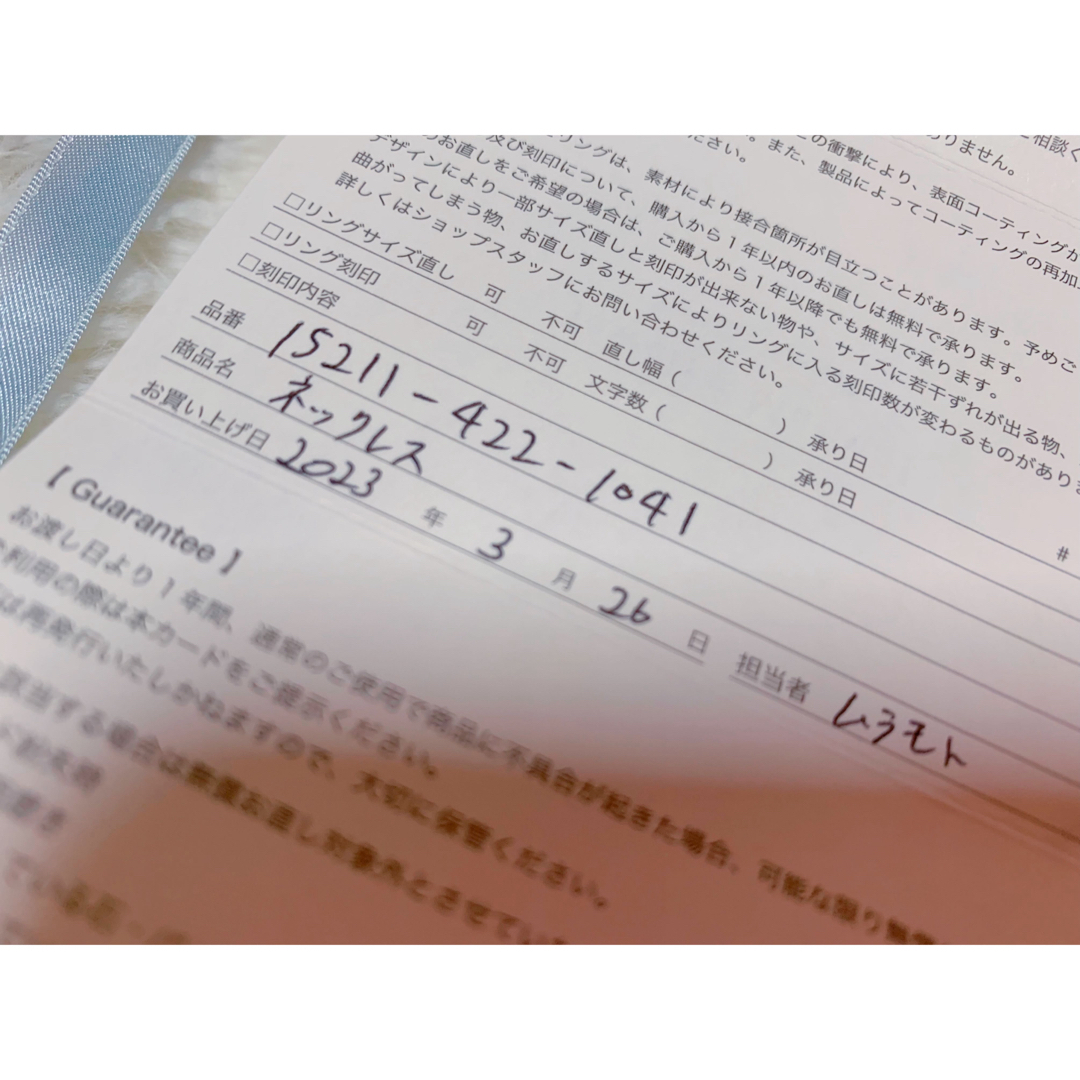 ご相談く
ありません。
この衝撃により、表面コーティングが
ださい。また、製品によってコーティングの再加
リングは、素材により接合箇所が目立つことがあります。予めご
及び刻印について、購入から1年以内のお直しは無料で承ります。
のお直しをご希望の場合は、ご購入から1年以降でも無料で承ります。
デザインにより一部サイズ直しと刻印が出来ない物や、サイズに若干ずれが出る物、
曲がってしまう物、お直しするサイズによりリングに入る刻印数が変わるものがあり
詳しくはショップスタッフにお問い合わせください。
□リングサイズ直し 可 不可 直し幅( ) 承り日
□リング刻印 可 不可 文字数( ) 承り日
□刻印内容
品番 15211-422-1041 #
商品名 ネックレス
お買い上げ日 2023 年 3 月 26 日 担当者 ムラモト
【 Guarantee 】
お渡し日より1年間、通常のご使用で商品に不具合が起きた場合、可能な限り無償
利用の際は本カードをご提示ください。
は再発行いたしかねますので、大切に保管ください。
該当する場合は無償お直し対象外とさせてい